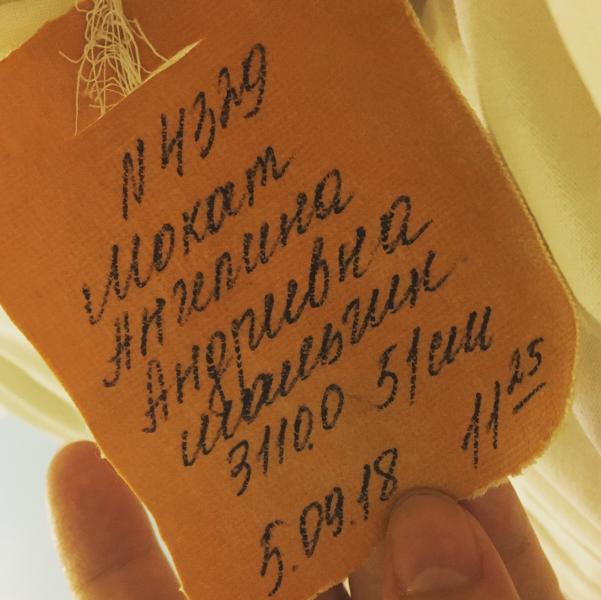 N 4329
Мохат
Ангелина
Андриевна
мальчик
3110.0 51см
5.09.18 11 25